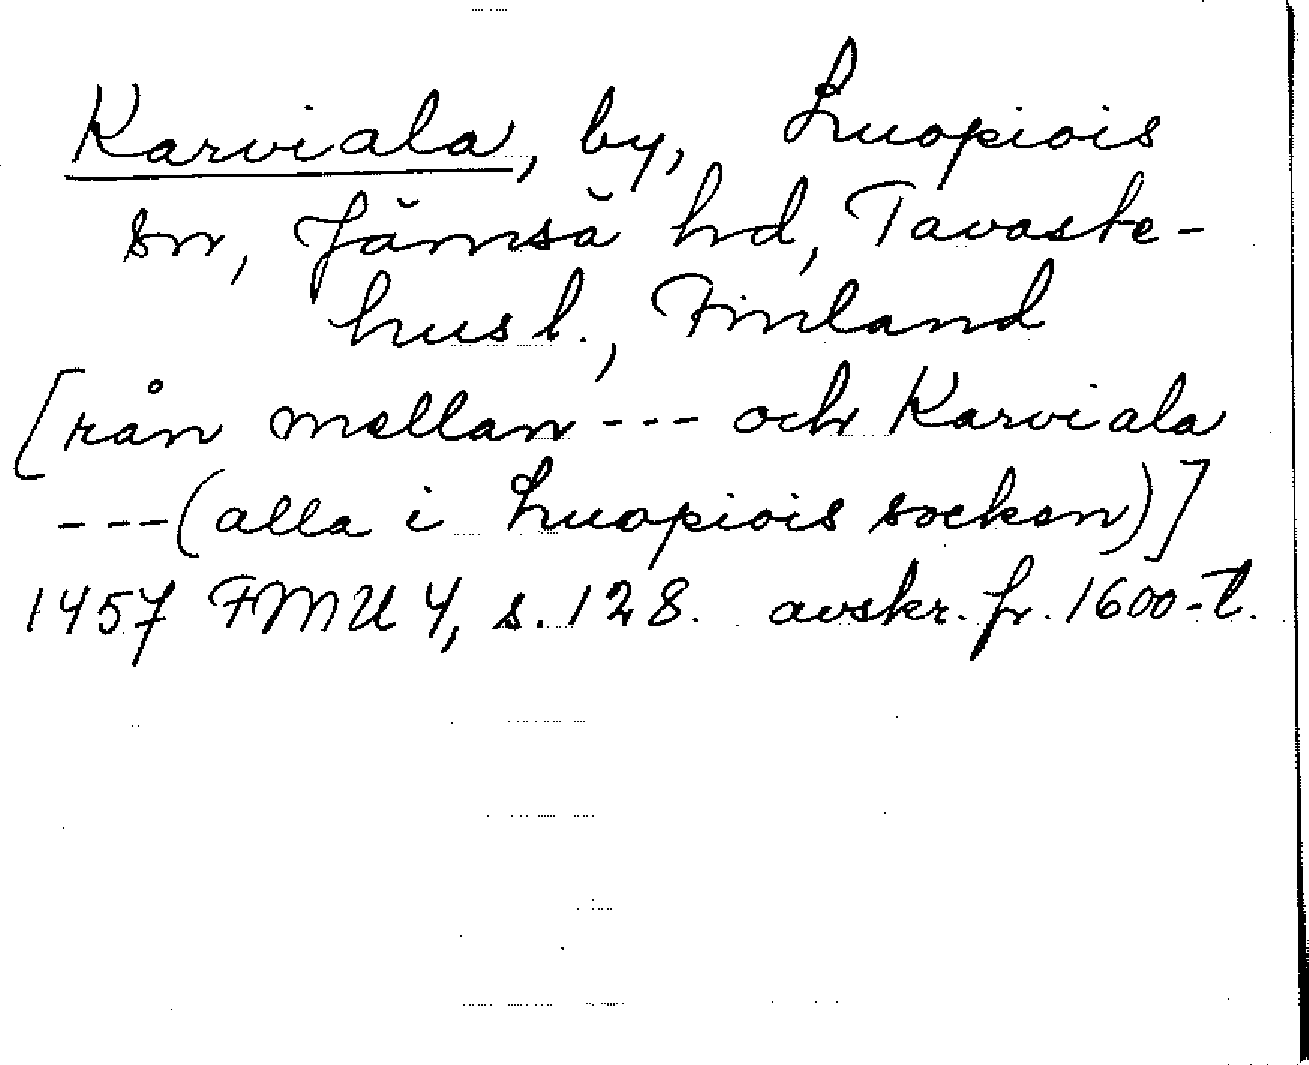 Karviala, by, Luopiois
sn, Jämsä hd, Tavaste-
hus l., Finland
[rån mellan --- och Karviala
---(alla i Luopiois socken)]
1457 FMU 4, s. 128. avskr. fr. 1600-t.